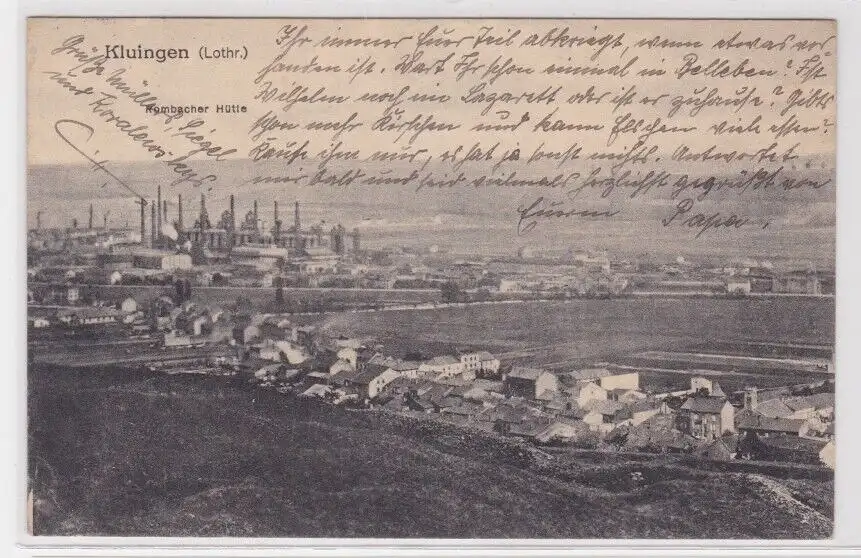 Kluingen (Lothr.)
Rombacher Hütte
Ihr immer Euer Teil abkriegt, wenn etwas vor-
handen ist. Wart Ihr schon einmal in Belleben? Ist
Wilhelm noch im Lazarett oder ist er zuhause? Gibts
schon mehr Kirschen und kann Elschen viele essen?
Kaufe ihm nur, es hat ja sonst nichts. Antwortet
mir bald und seid vielmals herzlichst gegrüßt von
Euerm Papa.
Grüße Müller, Siegel
und